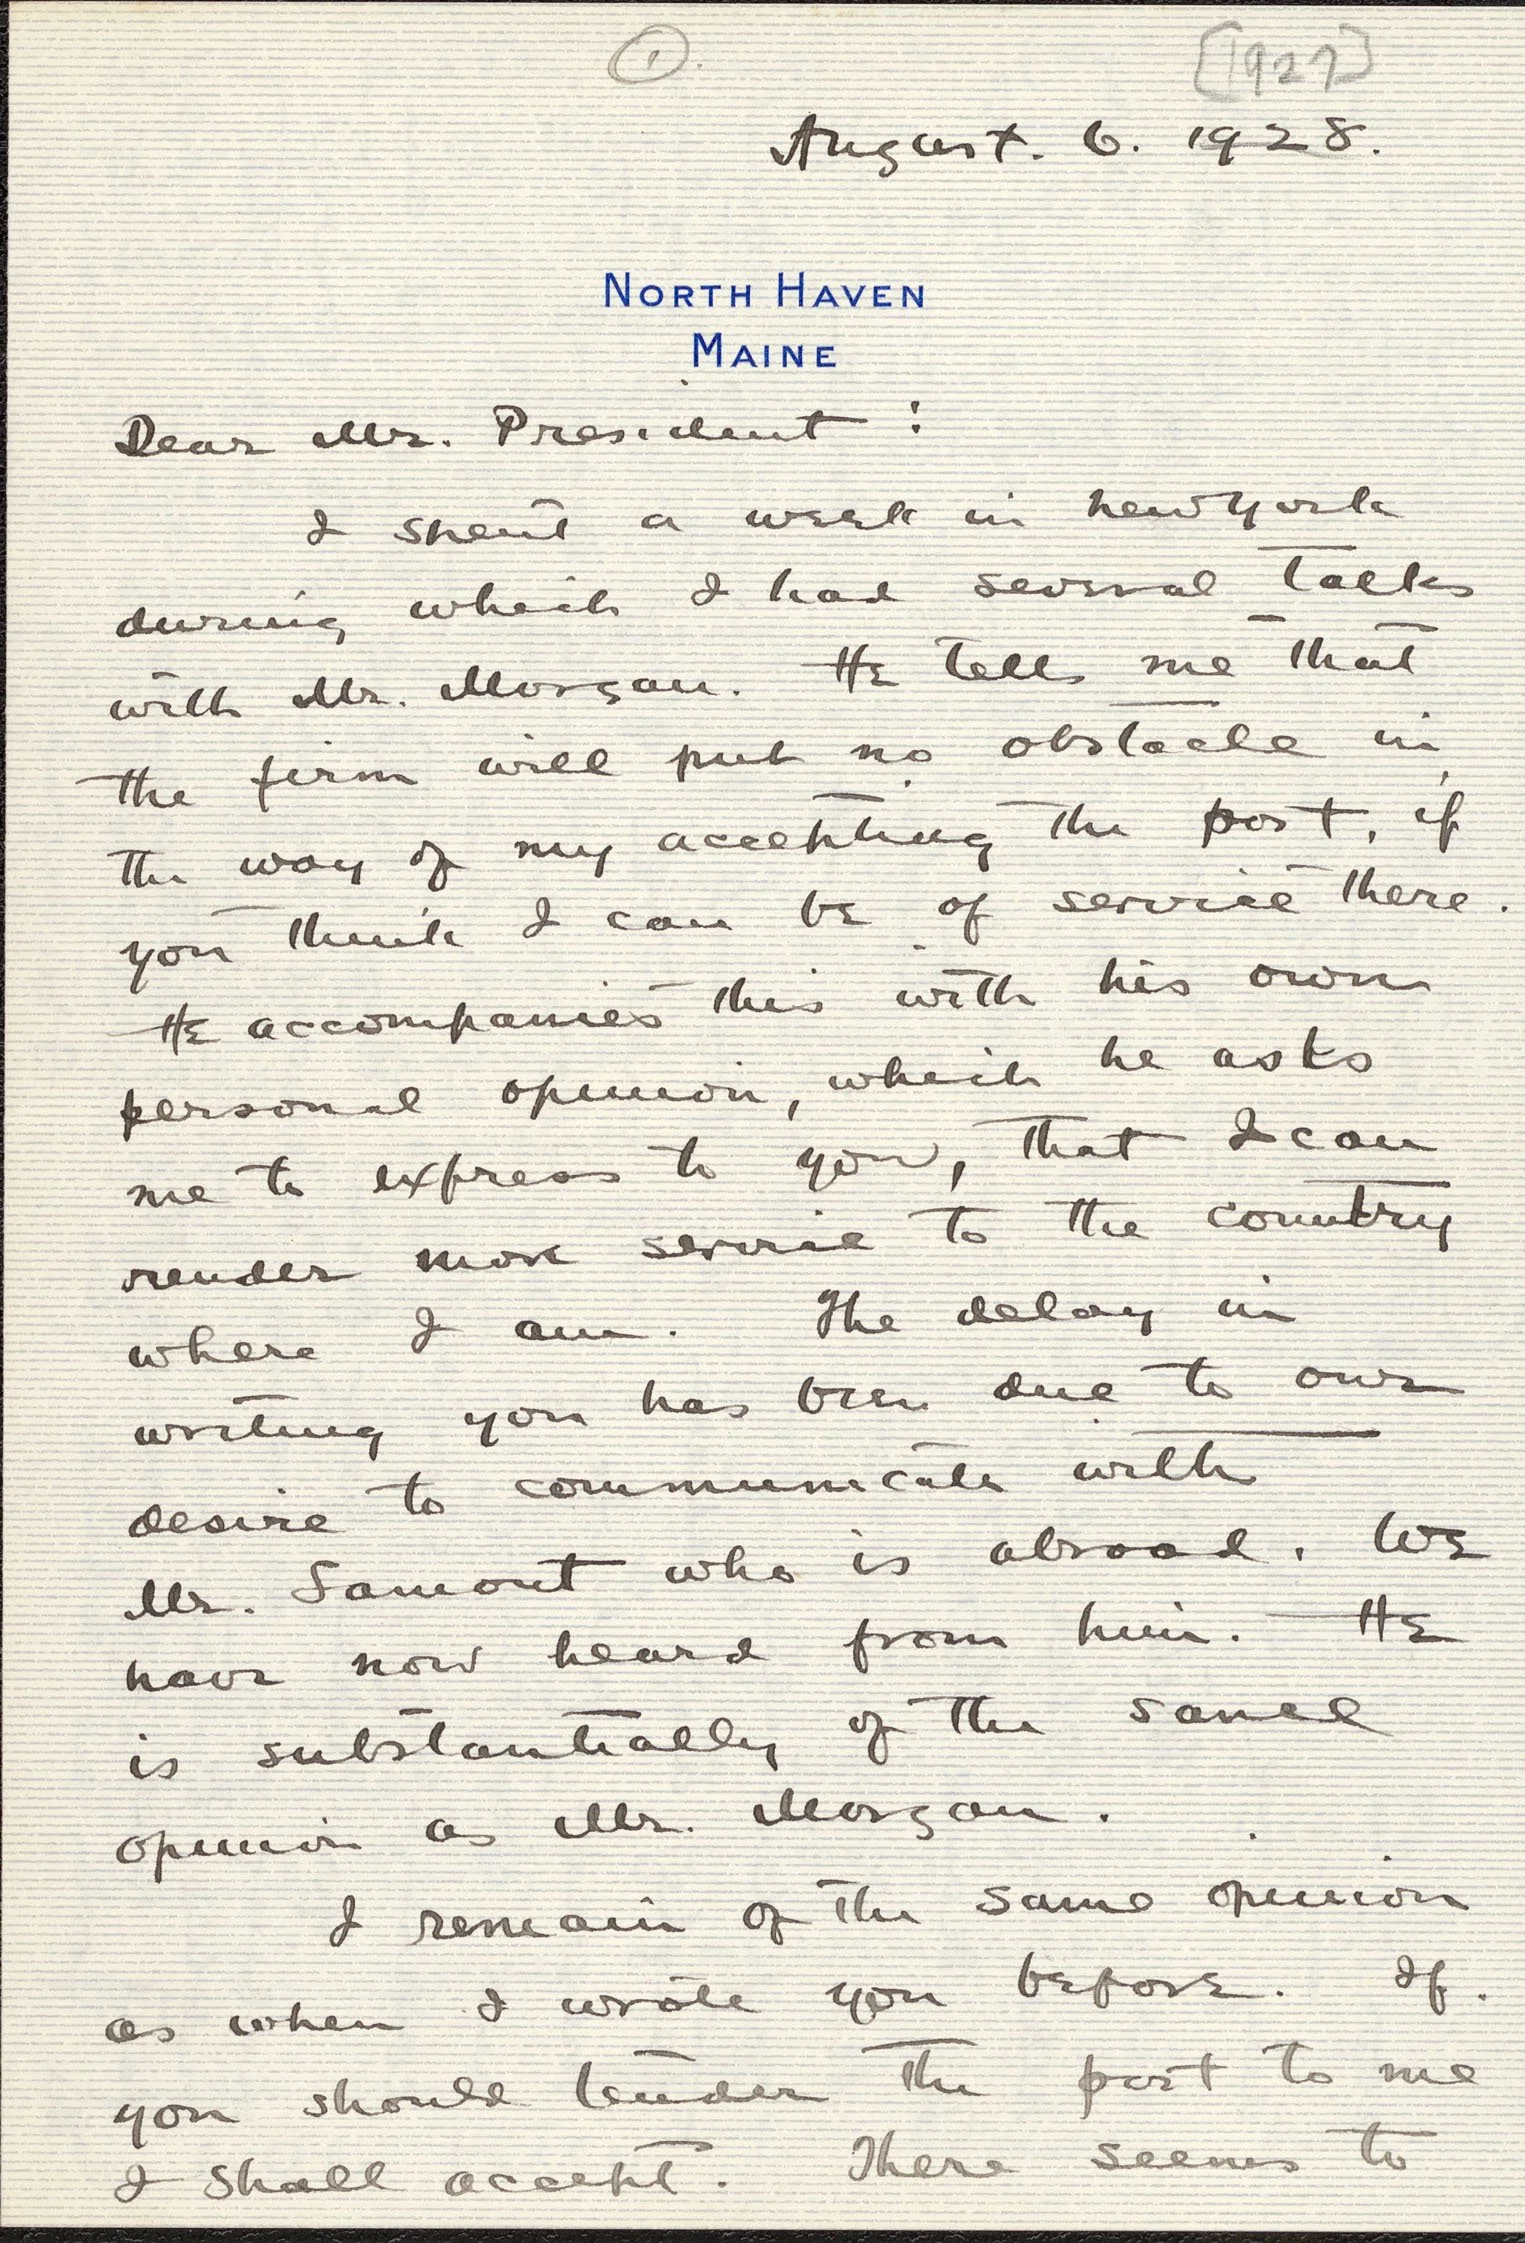 1.
[1927]
August. 6. 1928.
NORTH HAVEN
MAINE
Dear Mr. President:
I spent a week in New York
during which I had several talks
with Mr. Morgan. He tells me that
the firm will put no obstacle in
the way of my accepting the post, if
you think I can be of service there.
He accompanies this with his own
personal opinion, which he asks
me to express to you, that I can
render more service to the country
where I am. The delay in
writing you has been due to our
desire to communicate with
Mr. Lamont who is abroad. We
have now heard from him. He
is substantially of the same
opinion as Mr. Morgan.
I remain of the same opinion
as when I wrote you before. If
you should tender the post to me
I shall accept. There seems to